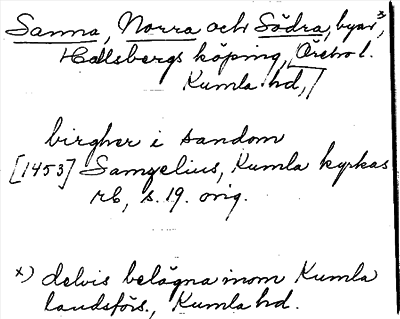 Sanna, Norra och Södra, byar,x)
Hallsbergs köping, Örebro l.
Kumla hd,
birgher i sandom
[1453] Samzelius, Kumla kyrkas
rb, s. 19. orig.
x) delvis belägna inom Kumla
landsförs., Kumla hd.